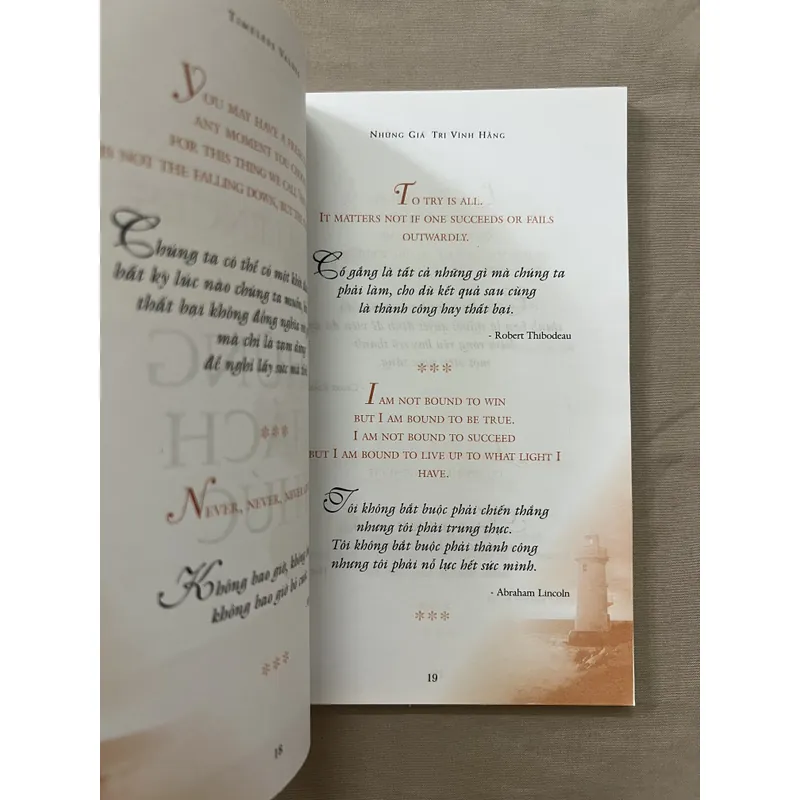 TIMELESS VALUES
YOU MAY HAVE A FRESH
ANY MOMENT YOU
FOR THIS THING WE CALL
IS NOT THE FALLING DOWN, BUT THE
Chúng ta có thể có một
bất kỳ lúc nào chúng ta muốn,
thất bại không đồng nghĩa
mà chỉ là tạm dừng
để nghỉ lấy sức mà
***
NEVER, NEVER, NEVER
Không bao giờ, không
không bao giờ bỏ
***
18
NHỮNG GIÁ TRỊ VĨNH HẰNG
TO TRY IS ALL.
IT MATTERS NOT IF ONE SUCCEEDS OR FAILS
OUTWARDLY.
Cố gắng là tất cả những gì mà chúng ta
phải làm, cho dù kết quả sau cùng
là thành công hay thất bại.
- Robert Thibodeau
***
I AM NOT BOUND TO WIN
BUT I AM BOUND TO BE TRUE.
I AM NOT BOUND TO SUCCEED
BUT I AM BOUND TO LIVE UP TO WHAT LIGHT I
HAVE.
Tôi không bắt buộc phải chiến thắng
nhưng tôi phải trung thực.
Tôi không bắt buộc phải thành công
nhưng tôi phải nỗ lực hết sức mình.
- Abraham Lincoln
***
19